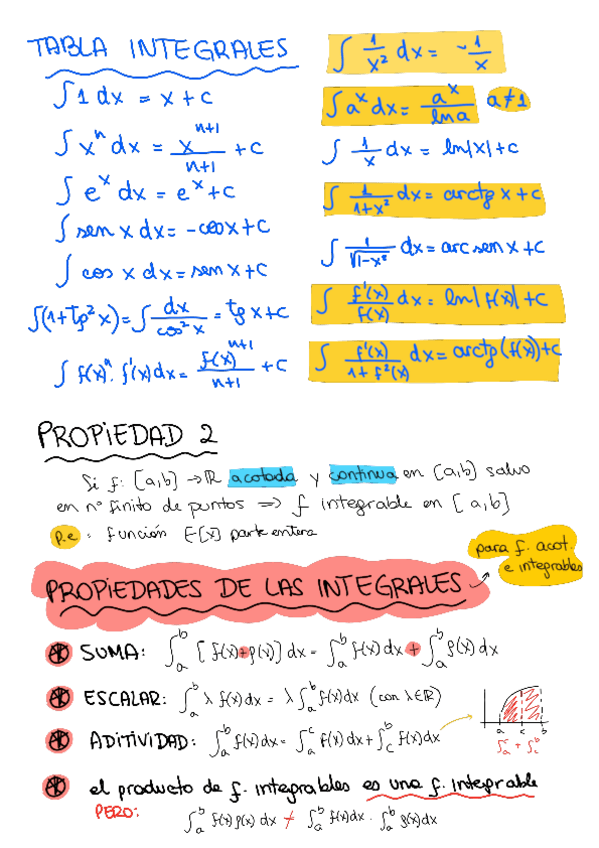 TABLA INTEGRALES
∫ 1 dx = x + c
∫ xⁿ dx = xⁿ⁺¹/(n+1) + c
∫ eˣ dx = eˣ + c
∫ sen x dx = -cos x + c
∫ cos x dx = sen x + c
∫(1+tg² x) = ∫ dx/cos² x = tg x + c
∫ f(x)ⁿ · f'(x) dx = f(x)ⁿ⁺¹/(n+1) + c
∫ 1/x² dx = -1/x
∫ aˣ dx = aˣ/ln a a≠1
∫ 1/x dx = ln|x| + c
∫ 1/(1+x²) dx = arctg x + c
∫ 1/√(1-x²) dx = arc sen x + c
∫ f'(x)/f(x) dx = ln|f(x)| + c
∫ f'(x)/(1+f²(x)) dx = arctg (f(x)) + c
PROPIEDAD 2
Si f: [a,b] → ℝ acotada y continua en [a,b] salvo
en nº finito de puntos ⇒ f integrable en [a,b]
p.e: función E[x] parte entera
para f. acot.
e integrables
PROPIEDADES DE LAS INTEGRALES
SUMA: ∫ₐᵇ [f(x)+g(x)] dx = ∫ₐᵇ f(x) dx + ∫ₐᵇ g(x) dx
ESCALAR: ∫ₐᵇ λ f(x) dx = λ ∫ₐᵇ f(x) dx (con λ∈ℝ)
ADITIVIDAD: ∫ₐᵇ f(x) dx = ∫ₐᶜ f(x) dx + ∫_c^b f(x) dx
a c b
∫ₐᶜ + ∫_c^b
el producto de f. integrables es una f. integrable
PERO: ∫ₐᵇ f(x) g(x) dx ≠ ∫ₐᵇ f(x) dx · ∫ₐᵇ g(x) dx